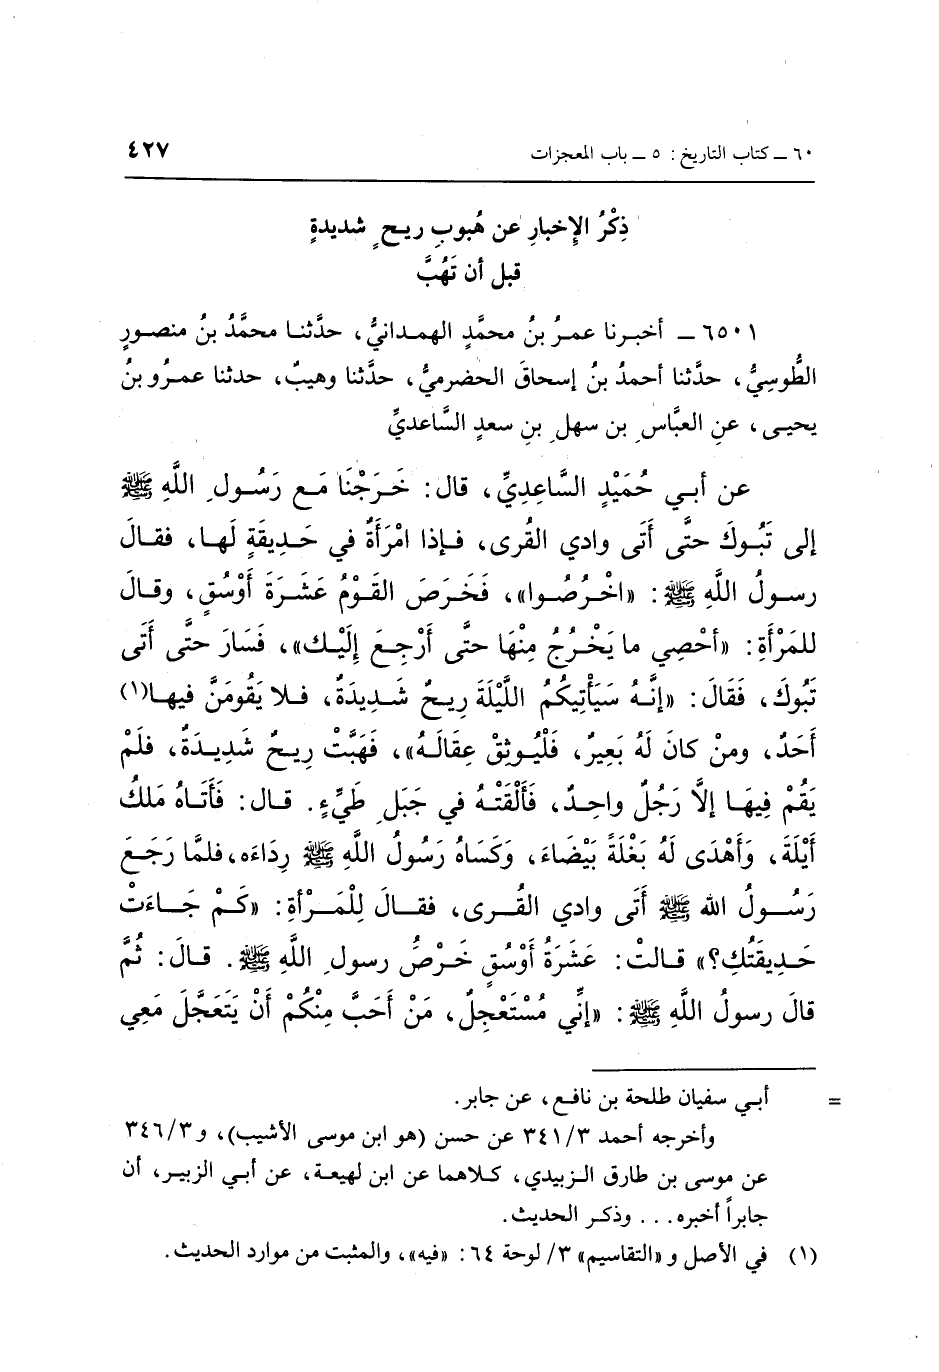 ٦٠ ــ كتاب التاريخ : ٥ ــ باب المعجزات ٤٢٧
ذِكْرُ الإِخبارِ عن هُبوبِ ريحٍ شديدةٍ
قبل أن تَهُبَّ
٦٥٠١ ــ أخبرنا عمرُ بنُ محمَّدٍ الهمدانيُّ، حدَّثنا محمَّدُ بنُ منصورٍ
الطُّوسِيُّ، حدَّثنا أحمدُ بنُ إسحاقَ الحضرميُّ، حدَّثنا وهيبٌ، حدثنا عمرُو بنُ
يحيى، عنِ العبَّاسِ بن سهلِ بنِ سعدٍ السَّاعديِّ
عن أبي حُمَيْدٍ السَّاعِدِيِّ، قال: خَرَجْنَا مَع رَسُولِ اللَّهِ ﷺ
إلى تَبُوكَ حتَّى أَتَى وادي القُرى، فإذا امْرَأَةٌ في حَدِيقَةٍ لَها، فقالَ
رسولُ اللَّهِ ﷺ: «اخْرُصُوا»، فَخَرَصَ القَوْمُ عَشَرَةَ أَوْسُقٍ، وقالَ
للمَرْأَةِ: «أحْصِي ما يَخْرُجُ مِنْهَا حتَّى أَرْجِعَ إِلَيْكِ»، فَسَارَ حتَّى أَتى
تَبُوكَ، فَقَالَ: «إنَّهُ سَيَأْتِيكُمُ اللَّيْلَةَ رِيحٌ شَدِيدَةٌ، فلا يَقُومَنَّ فيها(١)
أَحَدٌ، ومنْ كانَ لَهُ بَعِيرٌ، فَلْيُوثِقْ عِقَالَهُ»، فَهَبَّتْ رِيحٌ شَدِيدَةٌ، فلَمْ
يَقُمْ فِيهَا إلَّا رَجُلٌ واحِدٌ، فَأَلْقَتْهُ في جَبَلِ طَيِّءٍ. قال: فَأَتَاهُ مَلكُ
أَيْلَةَ، وَأَهْدَى لَهُ بَغْلَةً بَيْضَاءَ، وَكَسَاهُ رَسُولُ اللَّهِ ﷺ رِدَاءَه، فلمَّا رَجَعَ
رَسُولُ الله ﷺ أَتَى وادي القُرى، فقالَ لِلْمَرْأةِ: «كَمْ جَاءَتْ
حَدِيقَتُكِ؟» قالتْ: عَشَرَةُ أَوْسُقٍ خَرْصُ رسولِ اللَّهِ ﷺ. قالَ: ثُمَّ
قالَ رسولُ اللَّهِ ﷺ: «إنِّي مُسْتَعْجِلٌ، مَنْ أَحَبَّ مِنْكُمْ أَنْ يَتَعَجَّلَ مَعِي
= أبي سفيان طلحة بن نافع، عن جابر.
وأخرجه أحمد ٣٤١/٣ عن حسن (هو ابن موسى الأشيب)، و٣٤٦/٣
عن موسى بن طارق الزبيدي، كلاهما عن ابن لهيعة، عن أبي الزبير، أن
جابراً أخبره... وذكر الحديث.
(١) في الأصل و «التقاسيم» ٣/ لوحة ٦٤: «فيه»، والمثبت من موارد الحديث.